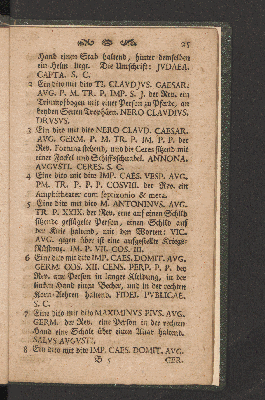 25
Hand einen Stab haltend, hinter demselben
ein Helm liegt. Die Umschrift: JVDAEA.
CAPTA. S. C.
2 Ein dito mit dito TI. CLAVDIVS. CAESAR.
AVG. P. M. TR. P. IMP. S. J. der Rev. ein
Triumpfbogen mit einer Person zu Pferde, an
beyden Seiten Tropháen. NERO CLAVDIVS.
DRVSVS.
3 Ein dito mit dito NERO CLAVD. CAESAR.
AVG. GERM. P. M. TR. P. IM. P. P. der
Rev. Fortuna stehend, und die Ceres sitzend mit
einer Fackel und Schiffsschnabel. ANNONA.
AVGVSTI. CERES. S. C.
4 Eine dito mit dito IMP. CAES. VESP. AVG.
PM. TR. P. P. P. COSVIII. der Rev. ein
Amphitheater cum septizonio & meta.
5 Eine dito mit dito M. ANTONINVS. AVG.
TR. P. XXIX. der Rev. eine auf einen Schild
sitzende geflügelte Person, einen Schild auf
der Knie haltend, mit den Worten: VIC.
AVG. gegen über ist eine aufgestellte Kriegs-
Rüstung. IM. P. VII. COS. III.
6 Eine dito mit dito IMP. CAES. DOMIT. AVG.
GERM. COS. XII. CENS. PERP. P. P. der
Rev. eine Person in langer Kleidung, in der
linken Hand einen Becher, und in der rechten
Korn-Aehren haltend. FIDEI. PVBLICAE.
S. C.
7 Eine dito mit dito MAXIMINVS PIVS. AVG.
GERM. der Rev. eine Person in der rechten
Hand eine Schale über einen Altar haltend.
SALVS AVGVSTI.
8 Ein dito mit dito IMP. CAES. DOMIT. AVG.
GER.